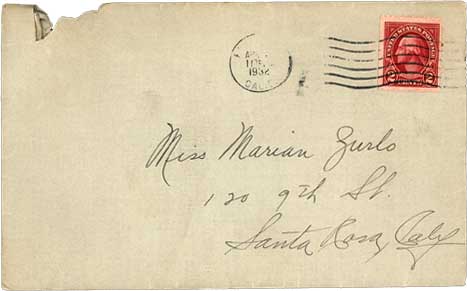 UNITED STATES POSTAGE
1932
CALIF
2 2
Miss Marian Zurlo
120 9th St.
Santa Rosa, Calif